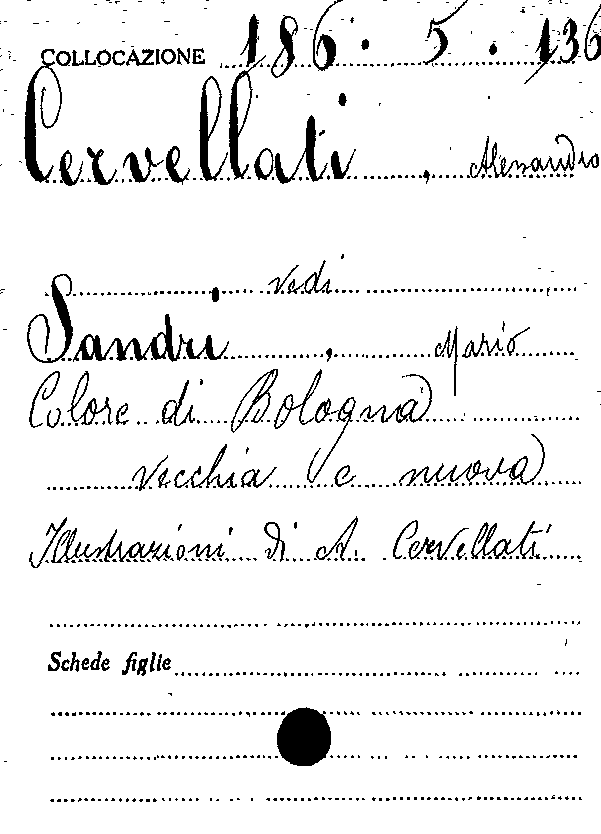 COLLOCAZIONE 186. 5. 136
Cervellati, Alessandro
vedi
Sandri, Mario
Colore di Bologna
vecchia e nuova
Illustrazioni di A. Cervellati
Schede figlie